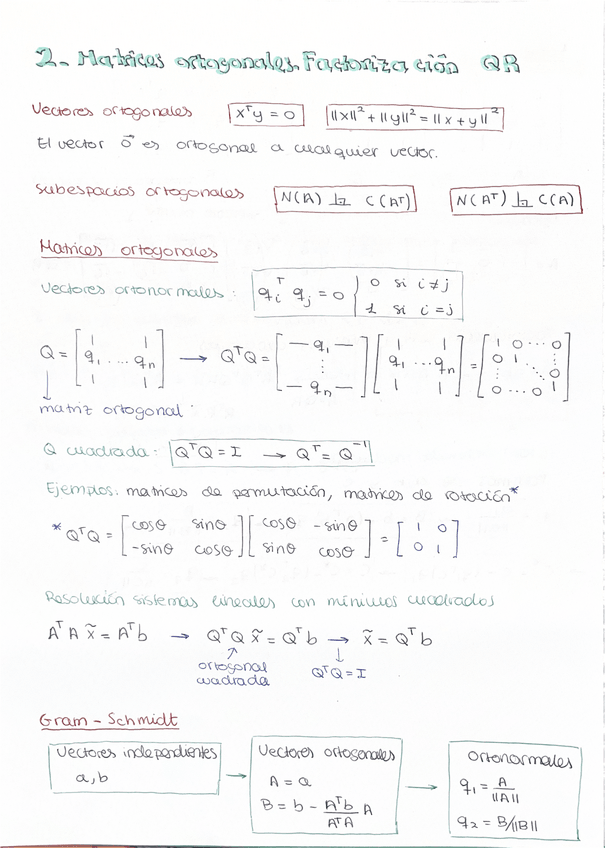 2.- Matrices ortogonales. Factorización QR
Vectores ortogonales xᵀy = 0 ||x||² + ||y||² = ||x + y||²
El vector 0⃗ es ortogonal a cualquier vector.
Subespacios ortogonales N(A) ⊥ C(Aᵀ) N(Aᵀ) ⊥ C(A)
Matrices ortogonales
Vectores ortonormales: qᵢᵀ qⱼ = 0 { 0 si i ≠ j
1 si i = j
Q = [ | | ; q₁ ... qₙ ; | | ] → QᵀQ = [ — q₁ — ; ⋮ ; — qₙ — ] [ | | ; q₁ ... qₙ ; | | ] = [ 1 0 ... 0 ; 0 1 ⋮ ; ⋮ ⋱ 0 ; 0 ... 0 1 ]
↓
matriz ortogonal:
Q cuadrada: QᵀQ = I → Qᵀ = Q⁻¹
Ejemplos: matrices de permutación, matrices de rotación*
*QᵀQ = [ cosθ sinθ ; -sinθ cosθ ] [ cosθ -sinθ ; sinθ cosθ ] = [ 1 0 ; 0 1 ]
Resolución sistemas lineales con mínimos cuadrados
AᵀA x̃ = Aᵀb → QᵀQ x̃ = Qᵀb → x̃ = Qᵀb
↑ ↓
ortogonal QᵀQ = I
cuadrada
Gram - Schmidt
Vectores independientes
a, b
→
Vectores ortogonales
A = a
B = b - Aᵀb/AᵀA A
→
ortonormales
q₁ = A/||A||
q₂ = B/||B||